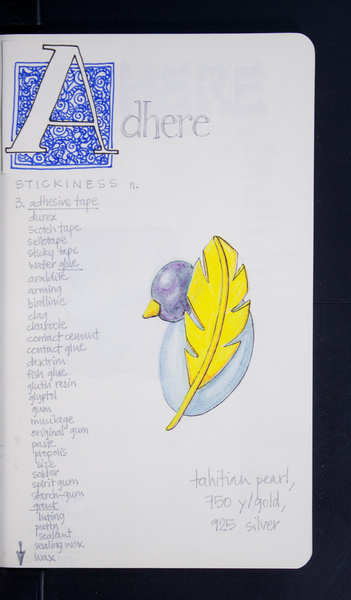 Adhere
STICKINESS n.
3. adhesive tape
durex
scotch tape
sellotape
sticky tape
wafer glue
araldite
arming
birdlime
clag
clearcole
contact cement
contact glue
dextrin
fish glue
glutin resin
glyptol
gum
mucilage
original gum
paste
propolis
size
solder
spirit gum
starch-gum
grout
luting
putty
sealant
sealing wax
wax
tahitian pearl,
750 y/gold,
925 silver